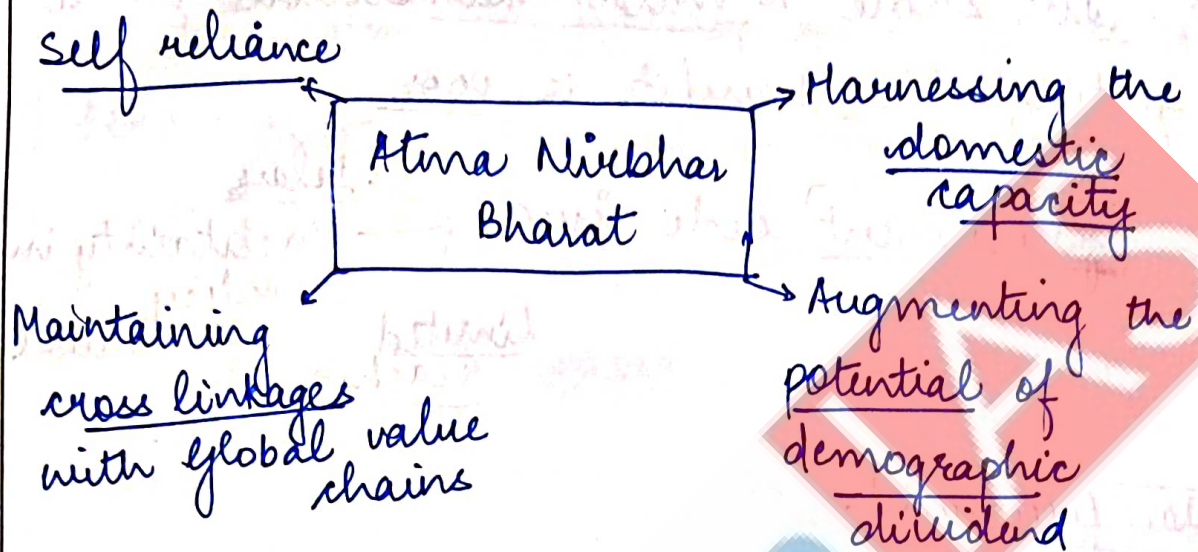 Self reliance
Atma Nirbhar
Bharat
Harnessing the
domestic
capacity
Maintaining
cross linkages
with global value
chains
Augmenting the
potential of
demographic
dividend